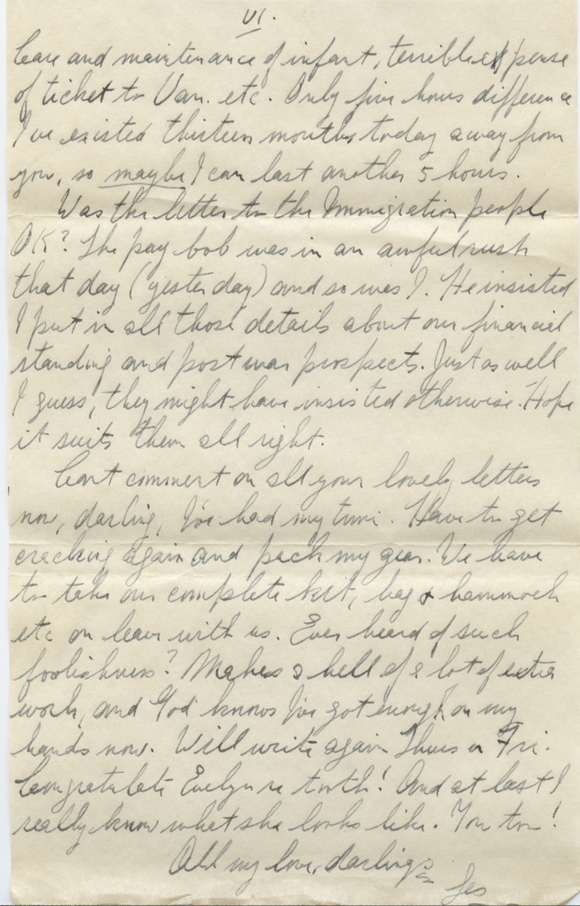 VI.
Care and maintenance of infant, terrible expense
of ticket to Van. etc. Only five hours difference
I've existed thirteen months today away from
you, so maybe I can last another 5 hours.
Was the letter to the Immigration people
OK? The pay bob was in an awful rush
that day (yesterday) and so was I. He insisted
I put in all those details about our financial
standing and post war prospects. Just as well
I guess, they might have insisted otherwise. Hope
it suits them all right.
Can't comment on all your lovely letters
now, darling, I've had my time. Have to get
cracking again and pack my gear. We have
to take our complete kit, bag & hammock
etc on leave with us. Ever heard of such
foolishness? Makes a hell of a lot of extra
work, and God knows I've got enough on my
hands now. Will write again Thurs or Fri.
Congratulate Evelyn re tooth! And at last I
really know what she looks like. You too!
All my love, darling
Les